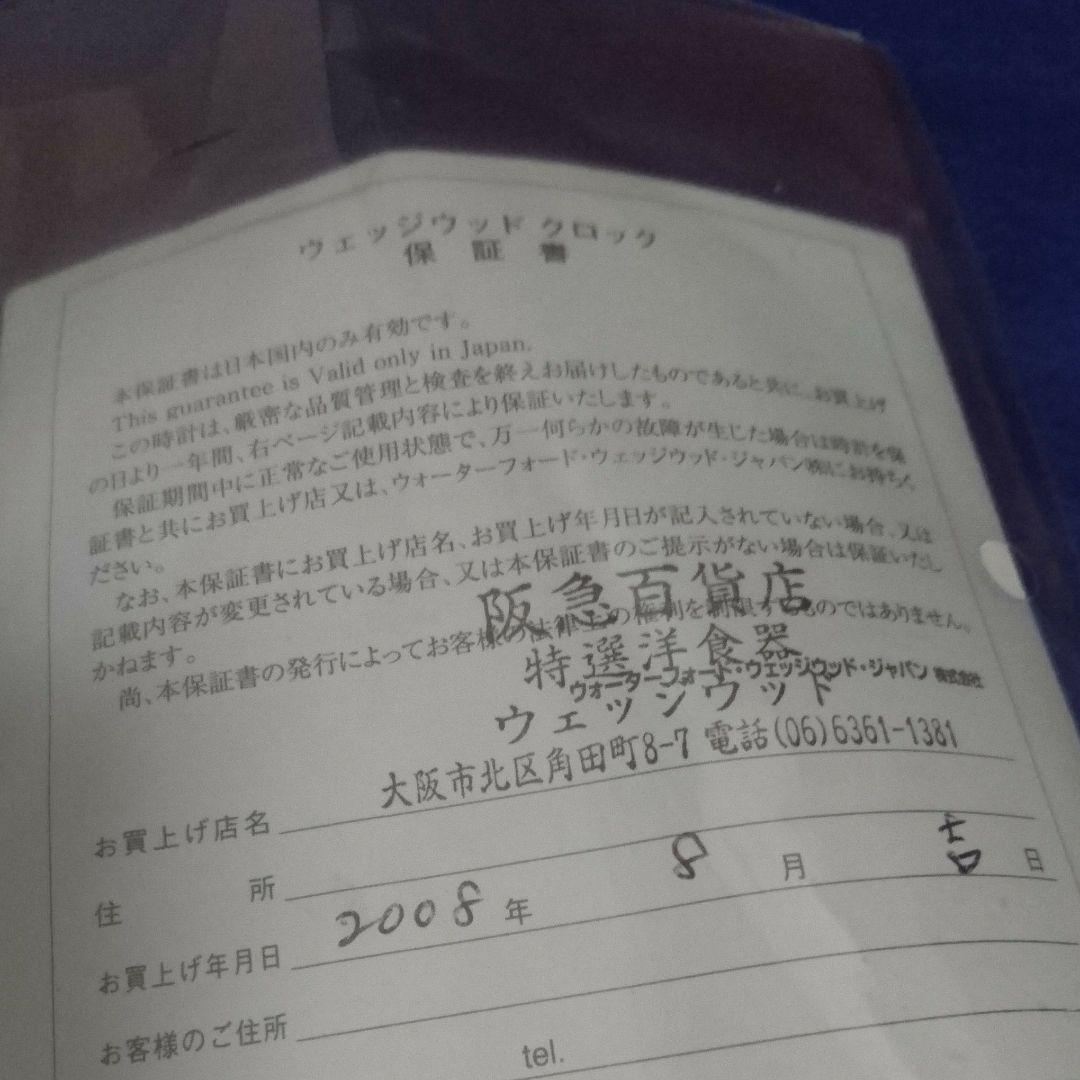 ウェッジウッド クロック
保証書
本保証書は日本国内のみ有効です。
This guarantee is Valid only in Japan.
この時計は、厳密な品質管理と検査を終えお届けしたものであると共に、お買上げ
の日より一年間、右ページ記載内容により保証いたします。
保証期間中に正常なご使用状態で、万一何らかの故障が生じた場合は時計を保
証書と共にお買上げ店又は、ウォーターフォード・ウェッジウッド・ジャパン㈱にお持ち
ださい。
なお、本保証書にお買上げ店名、お買上げ年月日が記入されていない場合、又は
記載内容が変更されている場合、又は本保証書のご提示がない場合は保証いたし
かねます。
尚、本保証書の発行によってお客様の法律上の権利を制限するものではありません。
ウォーターフォード・ウェッジウッド・ジャパン 株式会社
阪急百貨店
特選洋食器
ウェッジウッド
大阪市北区角田町8-7 電話(06)6361-1381
お買上げ店名
住所
お買上げ年月日 2008年 8月 吉日
お客様のご住所
tel.